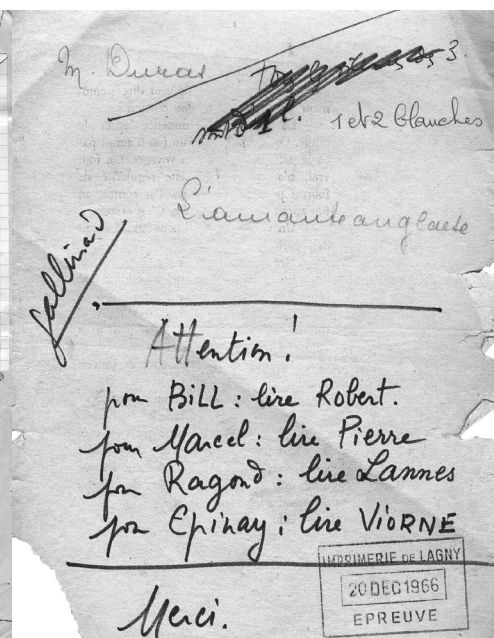 M. Duras
1 et 2 blanches
L'amante anglaise
Gallimard
Attention !
pour BiLL : lire Robert.
pour Marcel : lire Pierre
pour Ragond : lire Lannes
pour Epinay : lire ViORNE
Merci.
IMPRIMERIE DE LAGNY
20 DEC 1966
EPREUVE